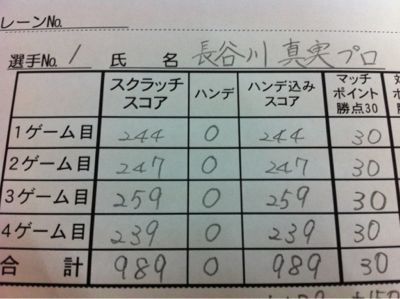 レーンNo.
選手No. 1 氏名 長谷川 真実プロ
スクラッチスコア ハンデ ハンデ込みスコア マッチポイント勝点30
1ゲーム目 244 0 244 30
2ゲーム目 247 0 247 30
3ゲーム目 259 0 259 30
4ゲーム目 239 0 239 30
合計 989 0 989 30